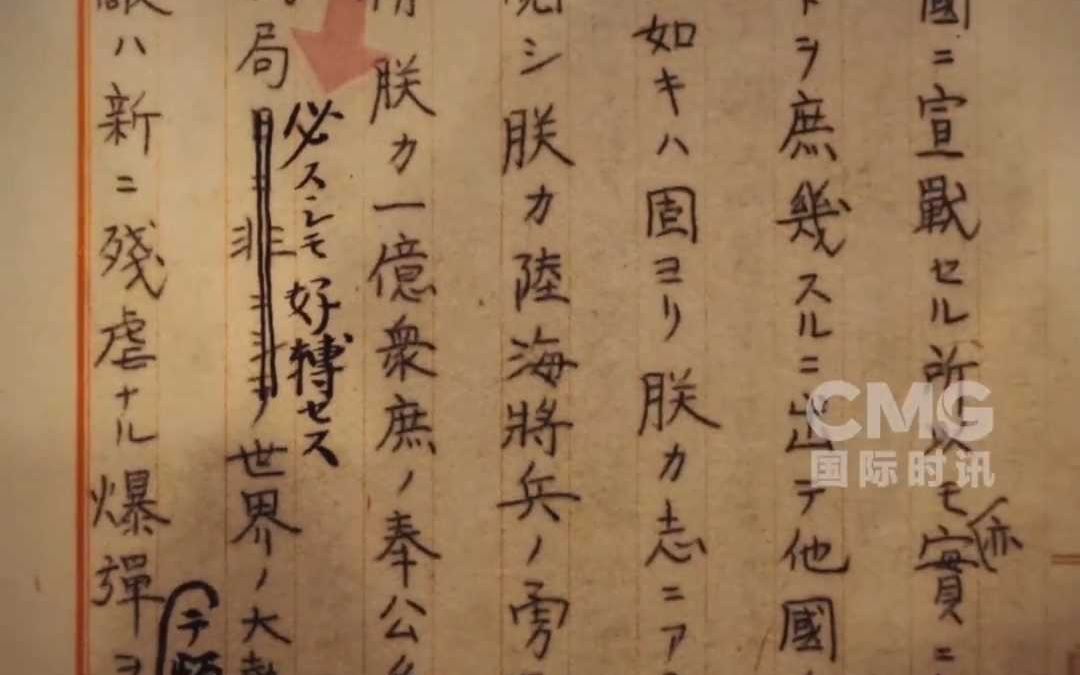 國ニ宣戰セル所以モ實ニ
亦
トヲ庶幾スルニ出テ他國
如キハ固ヨリ朕カ志ニア
閲シ朕カ陸海將兵ノ勇
精朕カ一億衆庶ノ奉公
必スシモ好轉セス
局日ニ非ニシテ世界ノ大勢
テ頻
敵ハ新ニ殘虐ナル爆彈ヲ
CMG
国际时讯